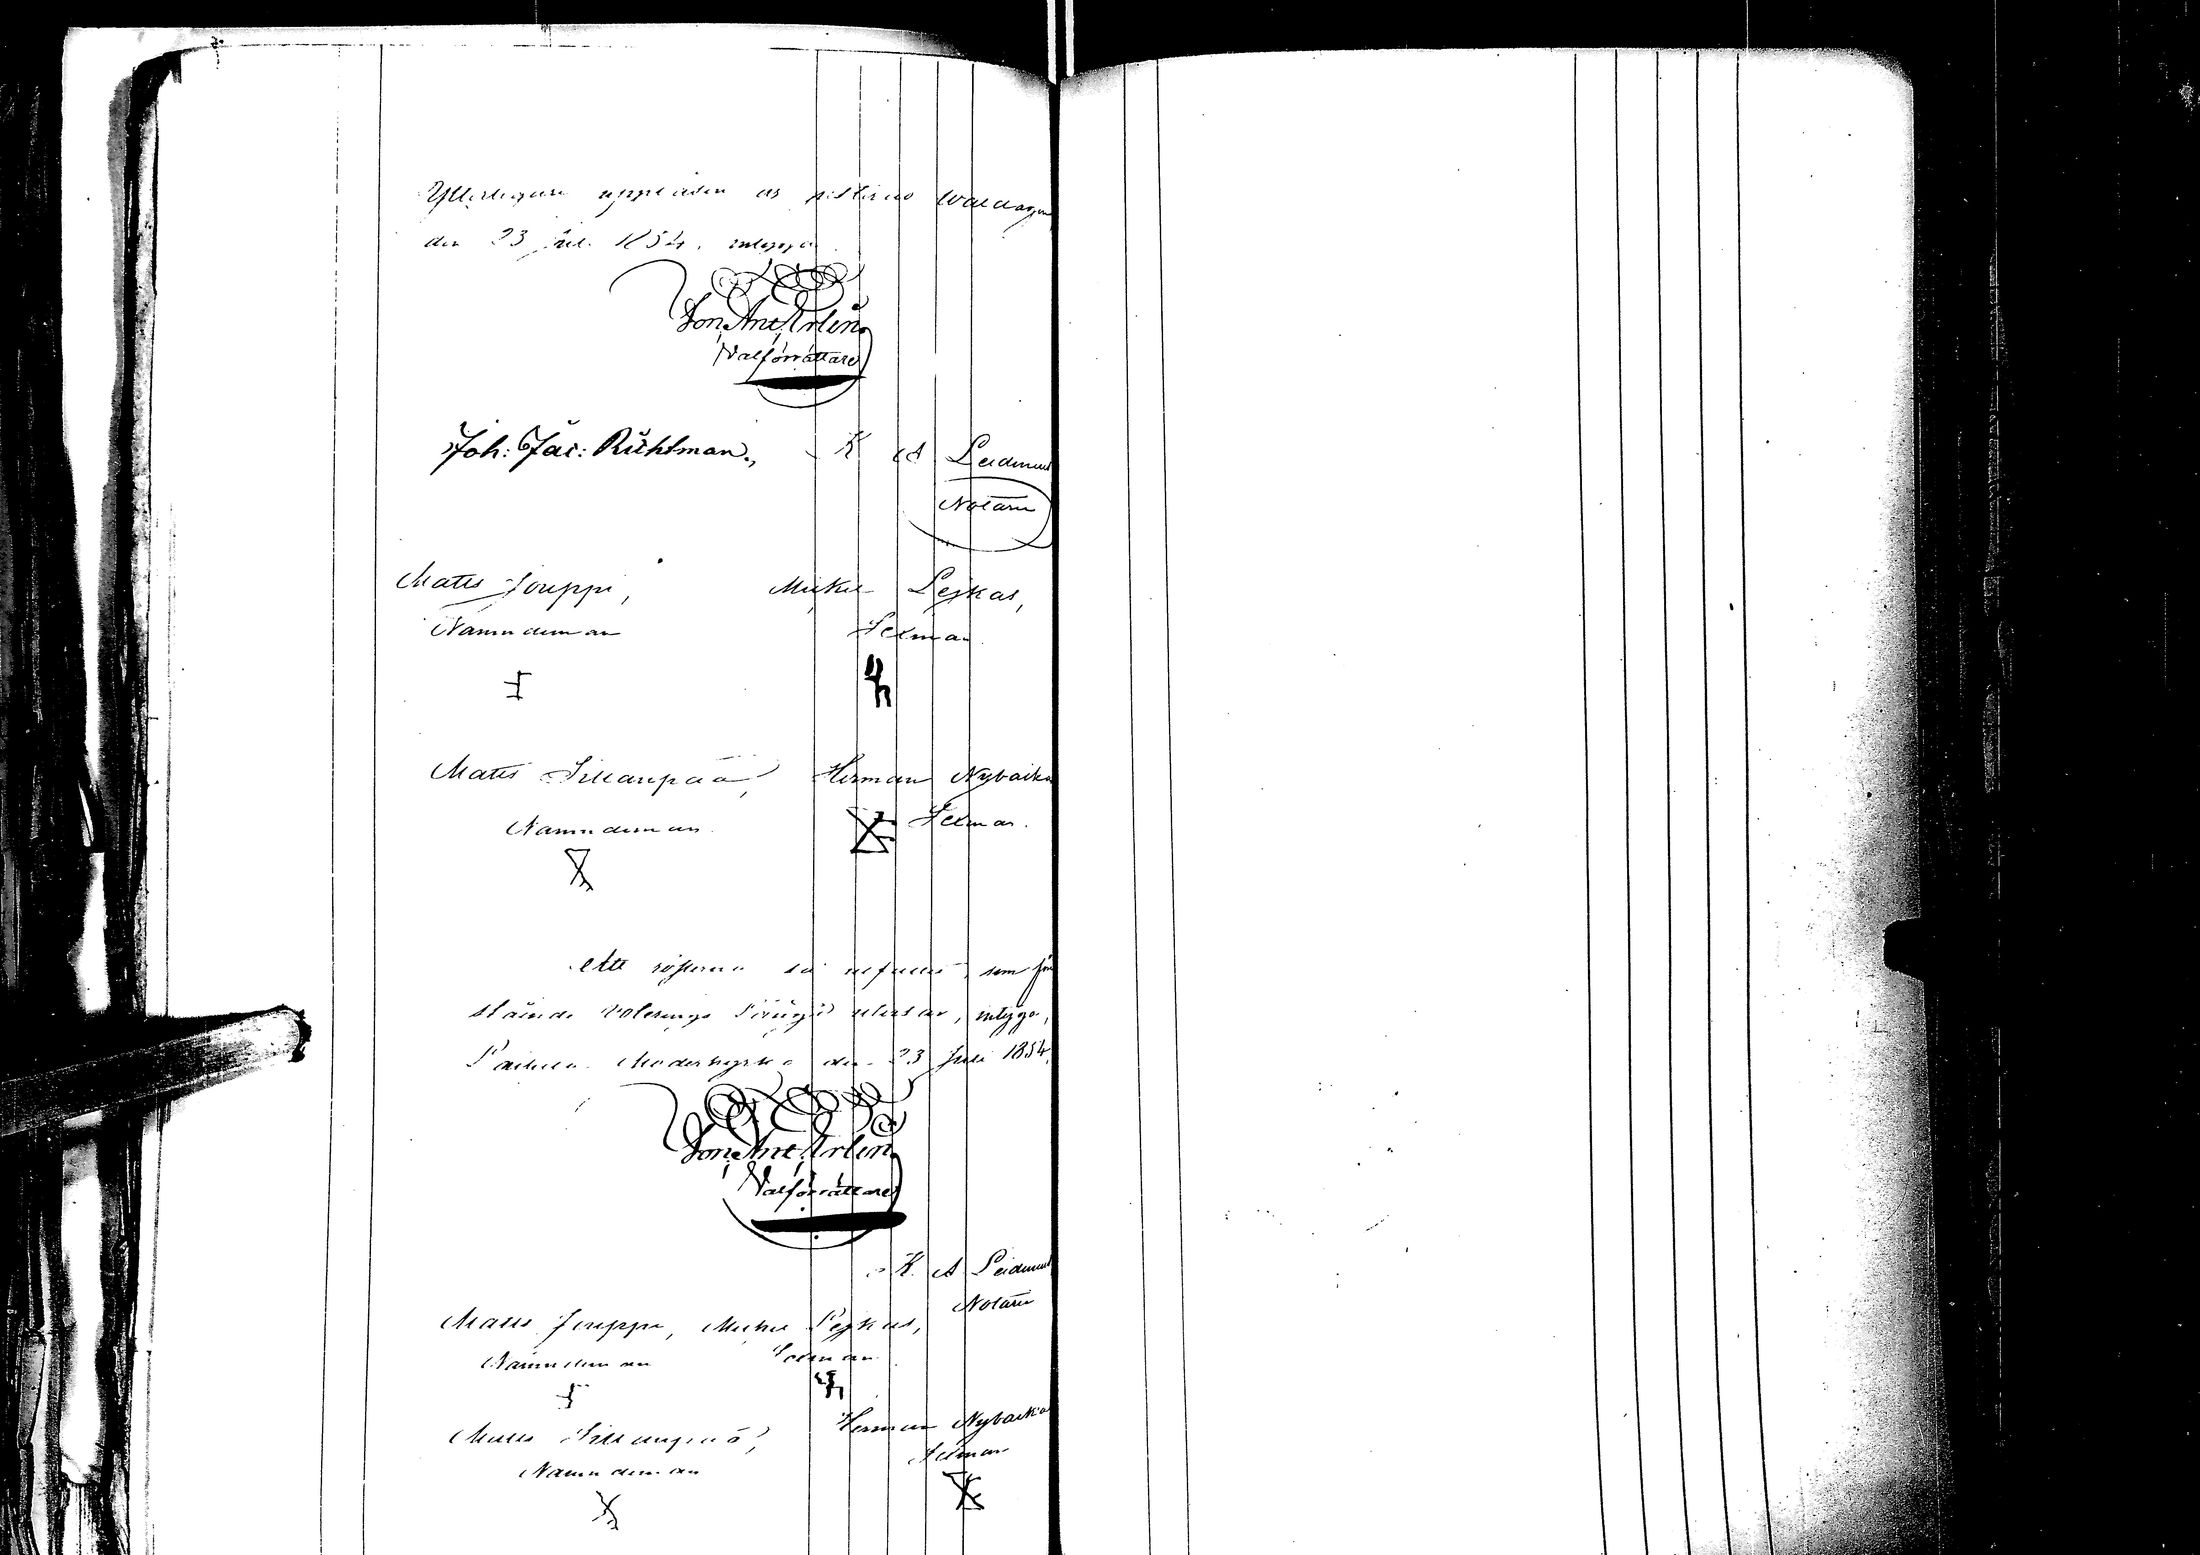 Ytterligare uppläsen och
den 23 Juli 1854, intyga
Jon. Ant. Arlin
Valförrättare
Joh: Jac: Richtman., K A Leidenius
Notarie
Matts Jouppi, Mickel Pejkas,
Nämndeman Sexman
Matts Sillanpää, Herman Nybacka
Nämndeman Sexman.
Att rösterna så utfallit, som före
stående Voterings Längd utvisar, intyga,
Moderkyrka den 23 Juli 1854.
Jon. Ant. Arlin
Valförrättare
K. A Leidenius
Notarie
Matts Jouppi, Mickel Pejkas,
Nämndeman Sexman
Matts Sillanpää, Herman Nybacka
Nämndeman Sexman